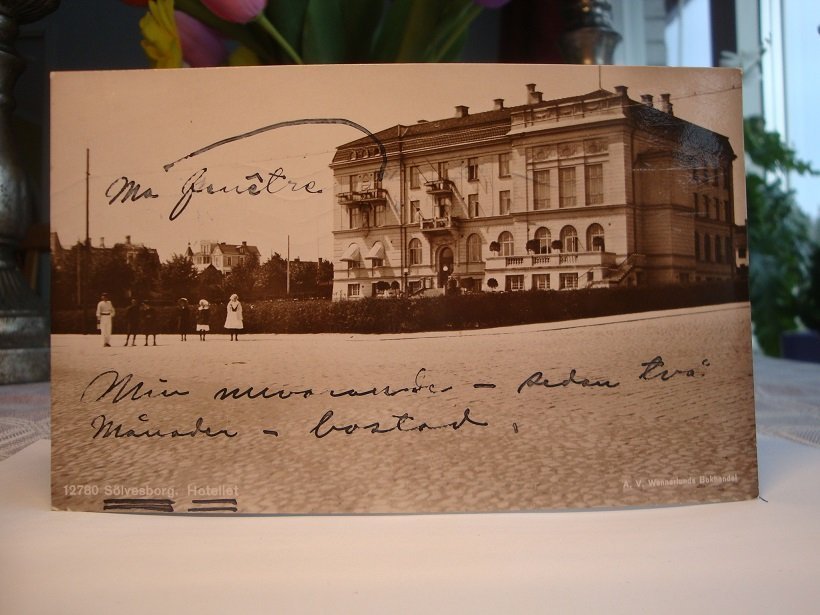 Ma fenêtre
Min nuvarande – sedan två
Månader – bostad.
12780 Sölvesborg. Hotellet
A. V. Wennerlunds Bokhandel